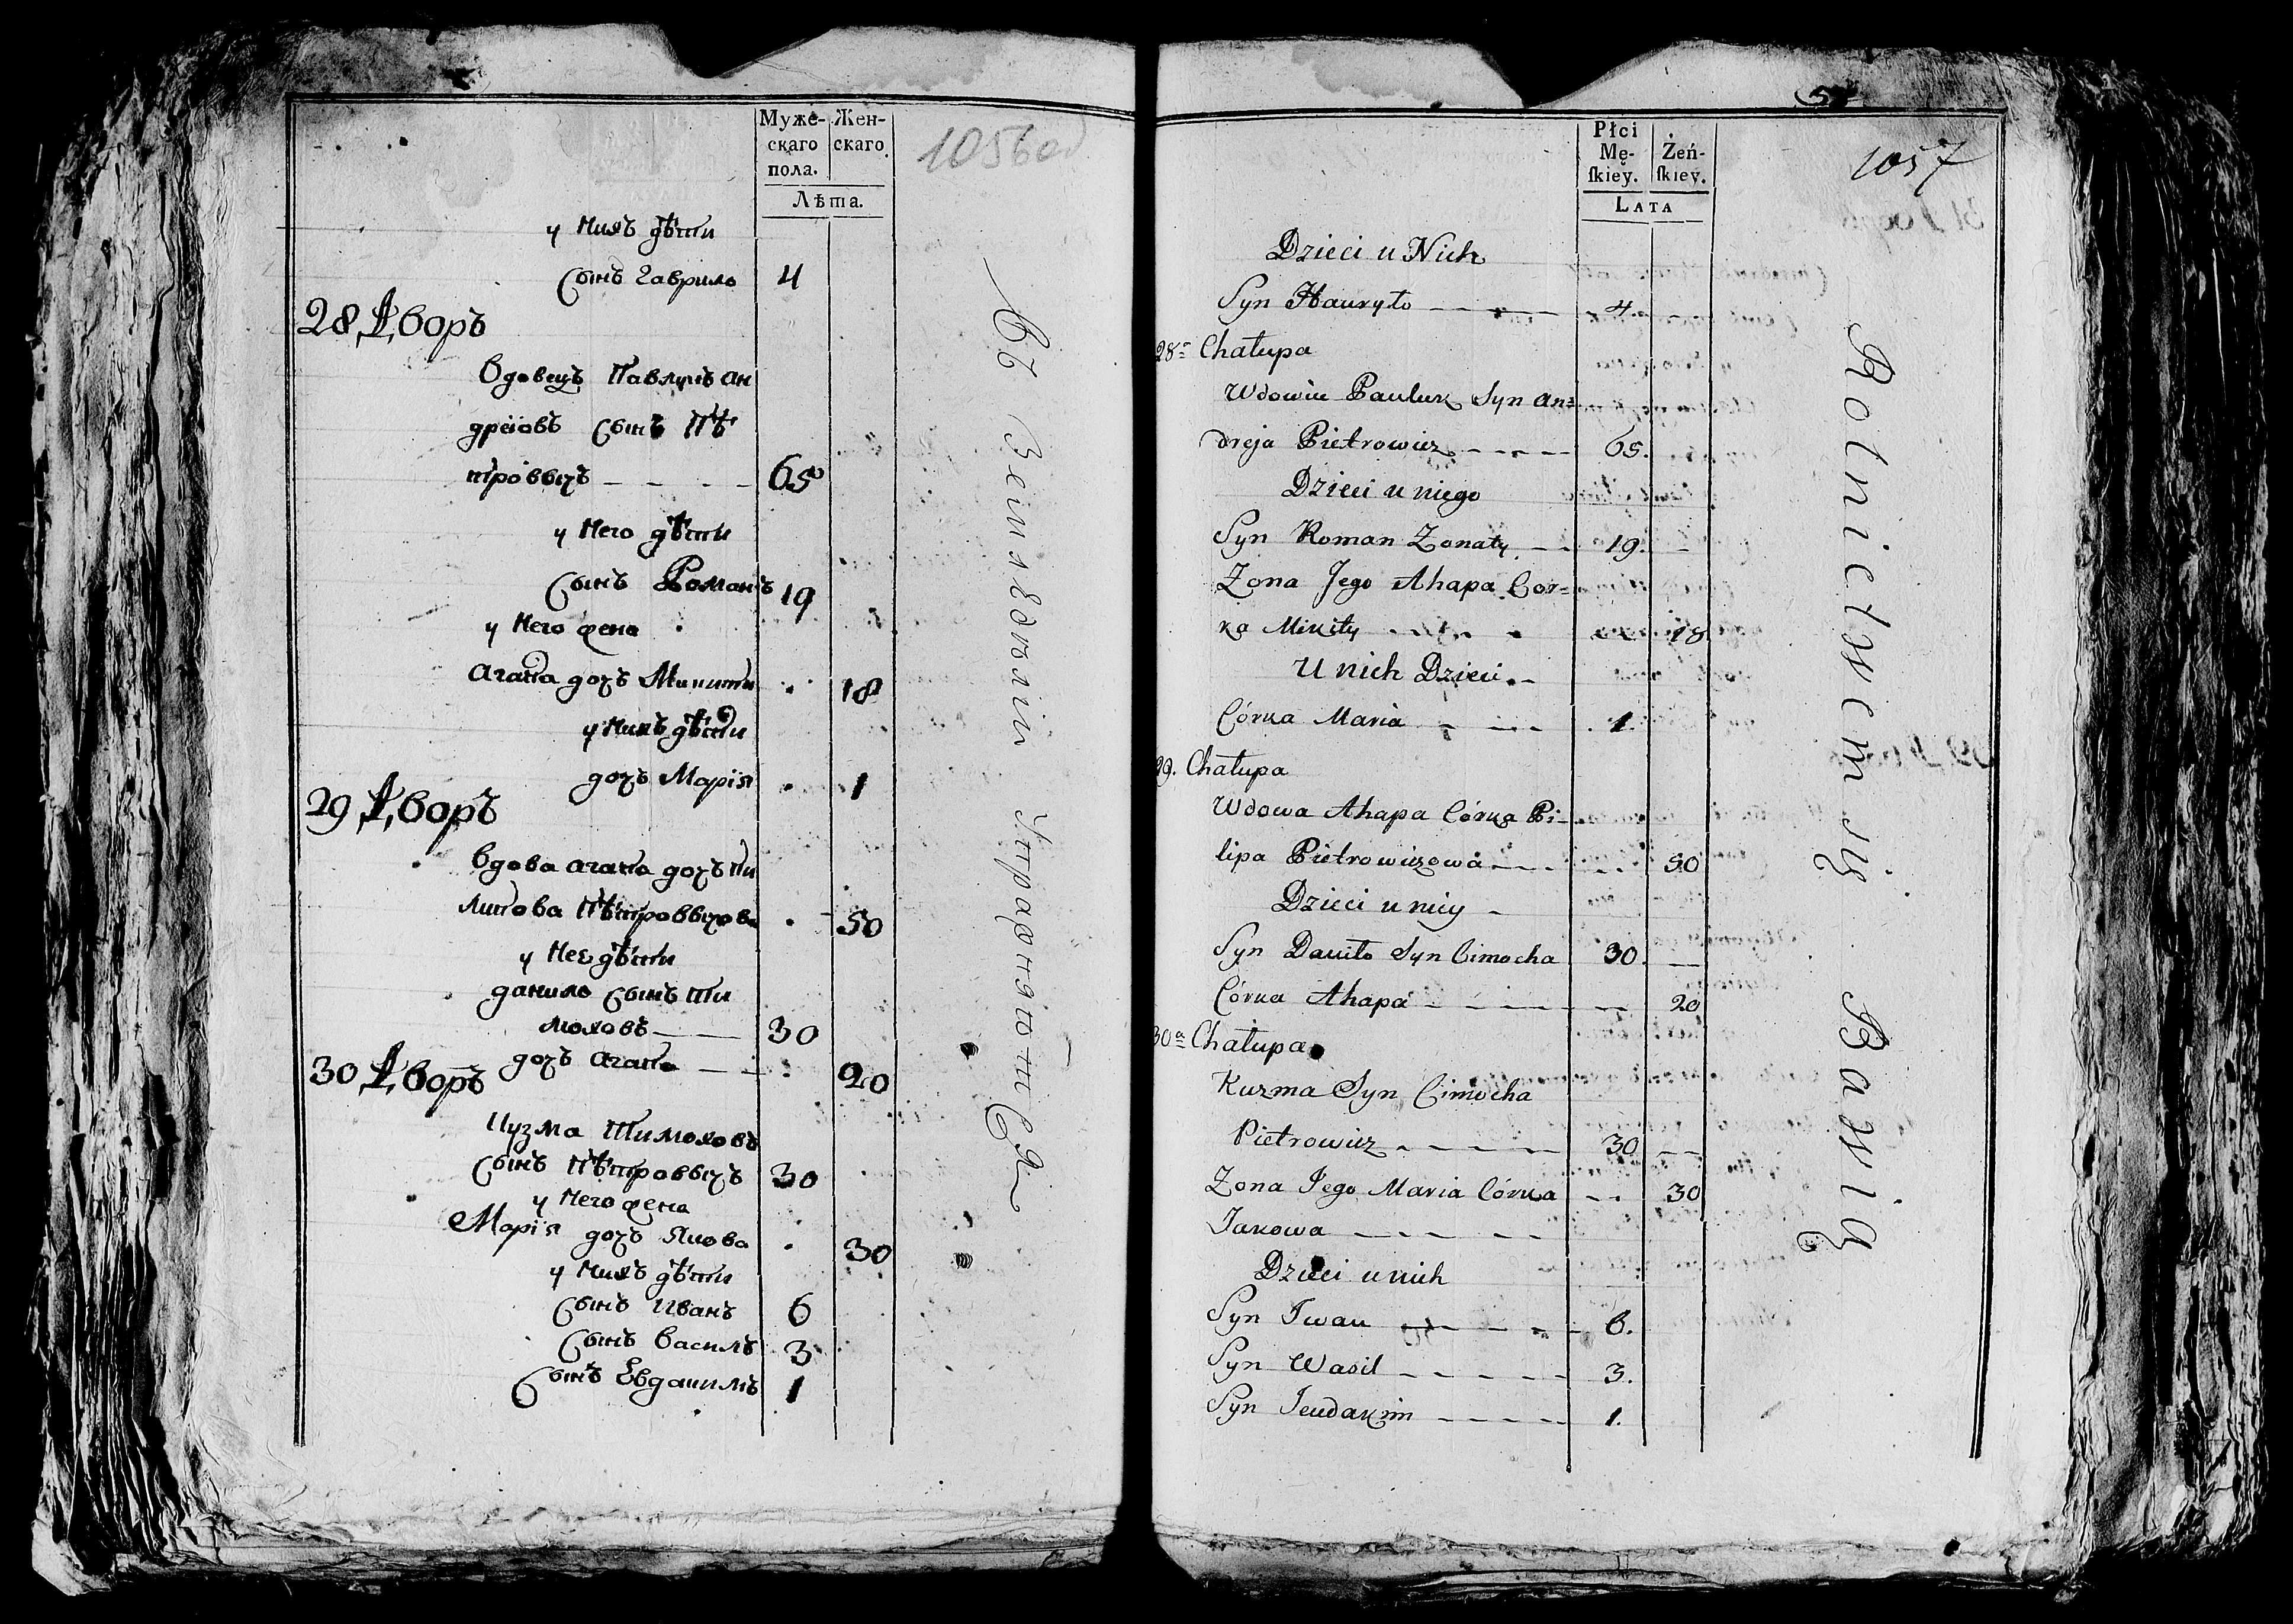 Муже-
скаго
пола.
Жен-
скаго
Лѣта.
1056od
у нихъ дѣти
сынъ Гаврило 4
28 Дворъ
вдовецъ Павлукъ ан
дреювъ сынъ Пѣ
тровьичъ 65
у него дѣти
сынъ Романъ 19
у него жена
агапа дочъ Микиты 18
у нихъ дѣти
дочъ Марія 1
29 Дворъ
вдова агапа дочъ пи
липова Пѣтровьичова 50
у нее дѣти
данило сынъ ти
моховъ 30
дочъ агапа 20
30 Дворъ
Кузма Тимоховъ
сынъ Пѣтровьичъ 30
у него жена
Марія дочъ Якова 30
у нихъ дѣти
сынъ Иванъ 6
сынъ Василь 3
сынъ Евдакимъ 1
Въ Земледѣліи Упражняются
5
1057
Płci
Mę-
ſkiey.
Żeń-
ſkiey.
LATA
Dzieci u Nich
Syn Hauryło 4.
28a Chałupa
Wdowiec Pauluk Syn An=
dreja Pietrowicz 65.
Dzieci u niego
Syn Roman Zonaty 19.
Zona Jego Ahapa Cor=
ka Mikity 18
U nich Dzieci
Córka Maria 1.
29. Chałupa
Wdowa Ahapa Córka Pi-
lipa Pietrowiczowa 50
Dzieci u niey
Syn Daniło Syn Cimocha 30.
Córka Ahapa 20
30a Chałupa
Kuzma Syn Cimocha
Pietrowicz 30
Zona Jego Maria Córka 30
Jakowa
Dzieci u nich
Syn Iwan 6.
Syn Wasil 3.
Syn Jeudakim 1.
Rolnictwem się Bawią